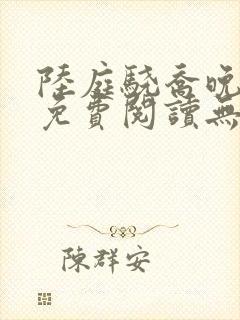 陸庭驍喬晚
免費閱讀無
陳群安